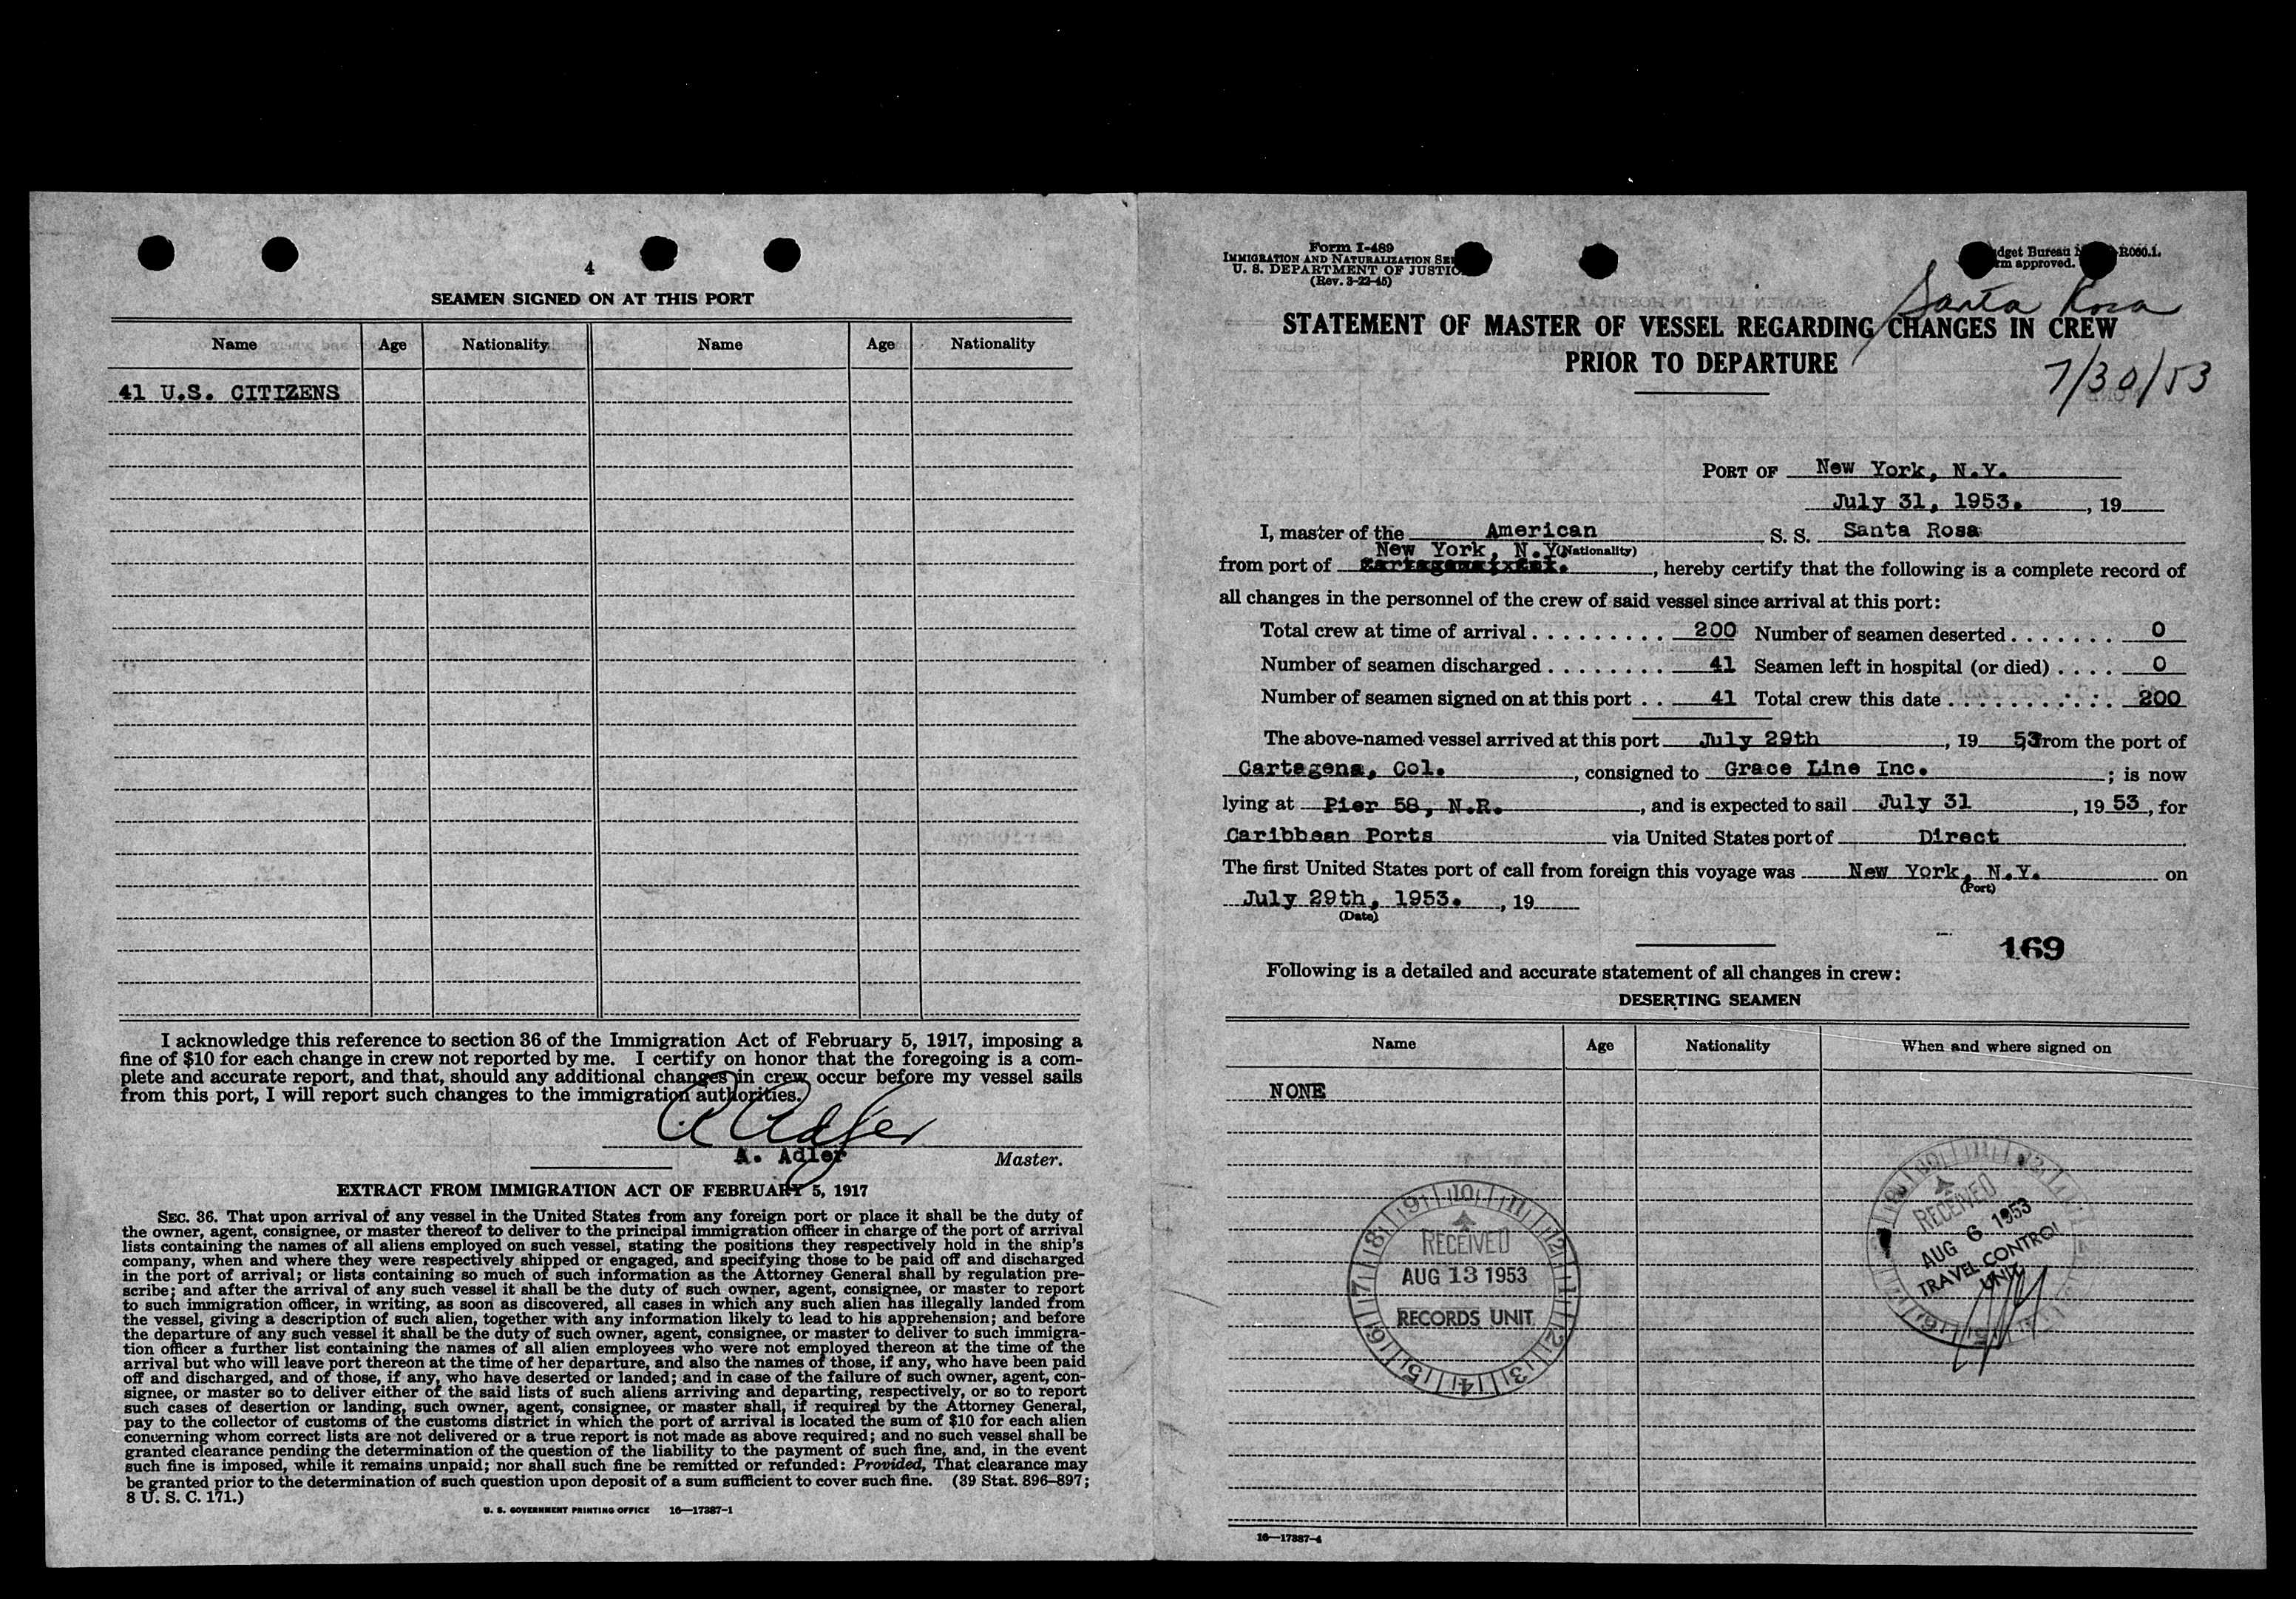 4
SEAMEN SIGNED ON AT THIS PORT
Name Age Nationality Name Age Nationality
41 U.S. CITIZENS
I acknowledge this reference to section 36 of the Immigration Act of February 5, 1917, imposing a
fine of $10 for each change in crew not reported by me. I certify on honor that the foregoing is a com-
plete and accurate report, and that, should any additional changes in crew occur before my vessel sails
from this port, I will report such changes to the immigration authorities.
A Adler
A. Adler Master.
EXTRACT FROM IMMIGRATION ACT OF FEBRUARY 5, 1917
SEC. 36. That upon arrival of any vessel in the United States from any foreign port or place it shall be the duty of
the owner, agent, consignee, or master thereof to deliver to the principal immigration officer in charge of the port of arrival
lists containing the names of all aliens employed on such vessel, stating the positions they respectively hold in the ship's
company, when and where they were respectively shipped or engaged, and specifying those to be paid off and discharged
in the port of arrival; or lists containing so much of such information as the Attorney General shall by regulation pre-
scribe; and after the arrival of any such vessel it shall be the duty of such owner, agent, consignee, or master to report
to such immigration officer, in writing, as soon as discovered, all cases in which any such alien has illegally landed from
the vessel, giving a description of such alien, together with any information likely to lead to his apprehension; and before
the departure of any such vessel it shall be the duty of such owner, agent, consignee, or master to deliver to such immigra-
tion officer a further list containing the names of all alien employees who were not employed thereon at the time of the
arrival but who will leave port thereon at the time of her departure, and also the names of those, if any, who have been paid
off and discharged, and of those, if any, who have deserted or landed; and in case of the failure of such owner, agent, con-
signee, or master so to deliver either of the said lists of such aliens arriving and departing, respectively, or so to report
such cases of desertion or landing, such owner, agent, consignee, or master shall, if required by the Attorney General,
pay to the collector of customs of the customs district in which the port of arrival is located the sum of $10 for each alien
concerning whom correct lists are not delivered or a true report is not made as above required; and no such vessel shall be
granted clearance pending the determination of the question of the liability to the payment of such fine, and, in the event
such fine is imposed, while it remains unpaid; nor shall such fine be remitted or refunded: Provided, That clearance may
be granted prior to the determination of such question upon deposit of a sum sufficient to cover such fine. (39 Stat. 896–897;
8 U. S. C. 171.)
U. S. GOVERNMENT PRINTING OFFICE 16—17387-1
Form I-489
IMMIGRATION AND NATURALIZATION
U. S. DEPARTMENT OF
(Rev. 3-22-45)
Bureau R060.1.
approved.
Santa Rosa
STATEMENT OF MASTER OF VESSEL REGARDING CHANGES IN CREW
PRIOR TO DEPARTURE
7/30/53
PORT OF New York, N.Y.
July 31, 1953. , 19
I, master of the American S. S. Santa Rosa
New York, N.Y. (Nationality)
from port of , hereby certify that the following is a complete record of
all changes in the personnel of the crew of said vessel since arrival at this port:
Total crew at time of arrival . . . . . . . . . 200 Number of seamen deserted . . . . . . . 0
Number of seamen discharged . . . . . . . . 41 Seamen left in hospital (or died) . . . . 0
Number of seamen signed on at this port . . 41 Total crew this date . . . . . . . . . . . 200
The above-named vessel arrived at this port July 29th , 19 53, from the port of
Cartagena, Col. , consigned to Grace Line Inc. ; is now
lying at Pier 58, N.R. , and is expected to sail July 31 , 19 53, for
Caribbean Ports via United States port of Direct
The first United States port of call from foreign this voyage was New York, N.Y. on
(Port)
July 29th, 1953. , 19
(Date)
169
Following is a detailed and accurate statement of all changes in crew:
DESERTING SEAMEN
Name Age Nationality When and where signed on
NONE
RECEIVED
AUG 13 1953
RECORDS UNIT
RECEIVED
AUG 6 1953
TRAVEL CONTROL
UNIT
16—17387-4